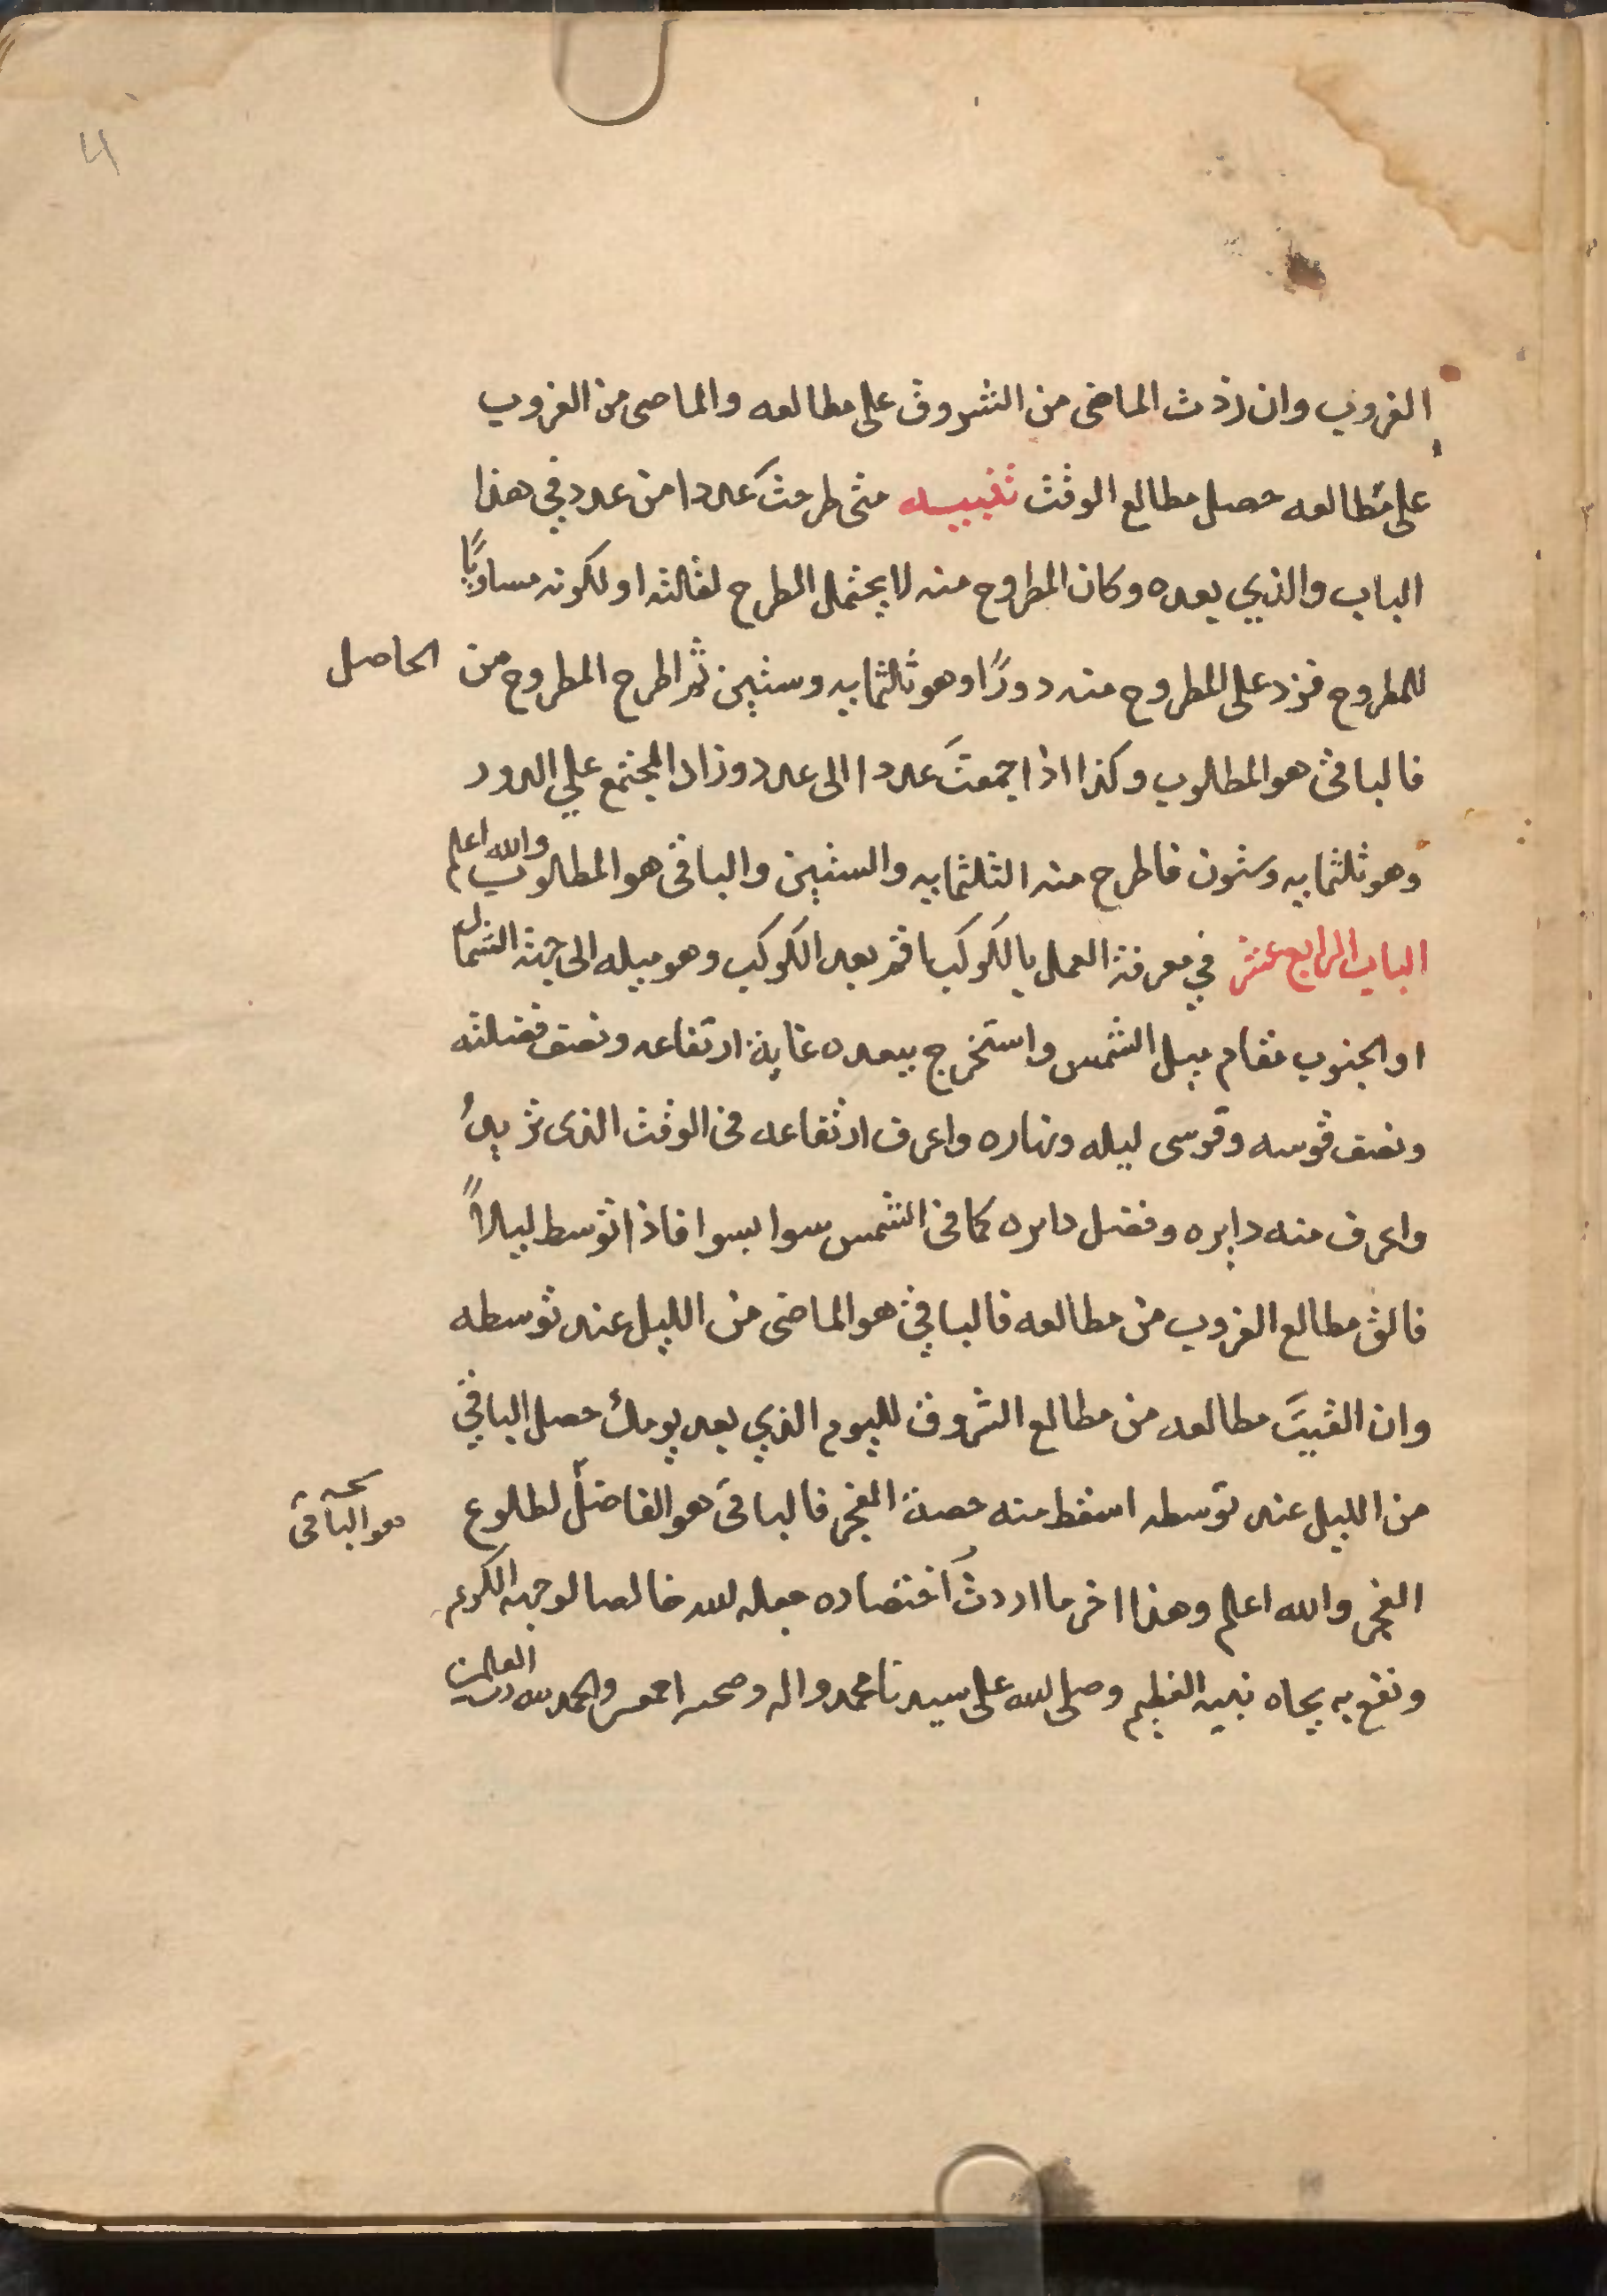 الغروب وان زدت الماضى من الشروق على مطالعه والماضى من الغروب
على مطالعه حصل مطالع الوقت تنبيه متى طرحت عددا من عدد في هذا
الباب والذي بعده وكان المطروح منه لا يحتمل الطرح لقلته او لكونه مساويًا
للمطروح فزد على المطروح منه دورًا وهو ثلثمايه وستين ثم اطرح المطروح من الحاصل
فالباقى هو المطلوب وكذا اذا جمعتَ عددا الى عدد وزاد المجتمع علي الدور
وهو ثلثمايه وستون فاطرح منه الثلثمايه والستين والباقى هو المطلوب والله اعلم
الباب الرابع عشر في معرفة العمل بالكوكب اقم بعد الكوكب وهو ميله الى جهة الشمال
او الجنوب مقام ميل الشمس واستخرج ببعده غاية ارتفاعه ونصف فضلته
ونصف قوسه وقوسى ليله ونهاره واعرف ارتفاعه فى الوقت الذى تريدُ
واعرف منه دايره وفضل دايره كما فى الشمس سوا بسوا فاذا توسط ليلاً
فالق مطالع الغروب من مطالعه فالباقي هو الماضى من الليل عند توسطه
وان القيتَ مطالعه من مطالع الشروق لليوم الذي بعد يومك حصل الباقي
من الليل عند توسطه اسقط منه حصة الفجر فالباقى هو الفاضل لطلوع
نسخه
وهو الباقى
الفجر والله اعلم وهذا اخر ما اردتُ اختصاره جعله الله خالصا لوجهه الكريم
ونفع به بجاه نبيه العظيم وصلى الله على سيدنا محمد واله وصحبه اجمعين والحمد لله رب العالمين